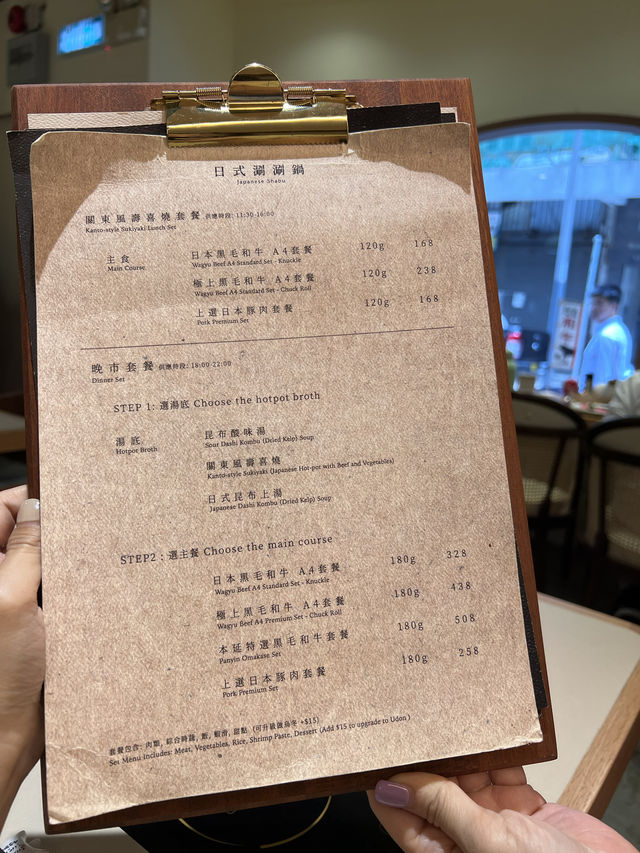 日式涮涮鍋
Japanese Shabu
關東風壽喜燒套餐 供應時段: 11:30-16:00
Kanto-style Sukiyaki Lunch Set
主食 日本黑毛和牛 A4套餐 120g 168
Main Course Wagyu Beef A4 Standard Set - Knuckle
極上黑毛和牛 A4套餐 120g 238
Wagyu Beef A4 Standard Set - Chuck Roll
上選日本豚肉套餐 120g 168
Pork Premium Set
晚市套餐 供應時段: 18:00-22:00
Dinner Set
STEP 1: 選湯底 Choose the hotpot broth
湯底 昆布酸味湯
Hotpot Broth Sour Dashi Kombu (Dried Kelp) Soup
關東風壽喜燒
Kanto-style Sukiyaki (Japanese Hot-pot with Beef and Vegetables)
日式昆布上湯
Japanese Dashi Kombu (Dried Kelp) Soup
STEP2 : 選主餐 Choose the main course
日本黑毛和牛 A4套餐 180g 328
Wagyu Beef A4 Standard Set - Knuckle
極上黑毛和牛 A4套餐 180g 438
Wagyu Beef A4 Premium Set - Chuck Roll
本延特選黑毛和牛套餐 180g 508
Panyin Omakase Set
上選日本豚肉套餐 180g 258
Pork Premium Set
套餐包含: 肉類, 綜合時蔬, 飯, 蝦滑, 甜點 (可升級做烏冬 +$15)
Set Menu Includes: Meat, Vegetables, Rice, Shrimp Paste, Dessert (Add $15 to upgrade to Udon )